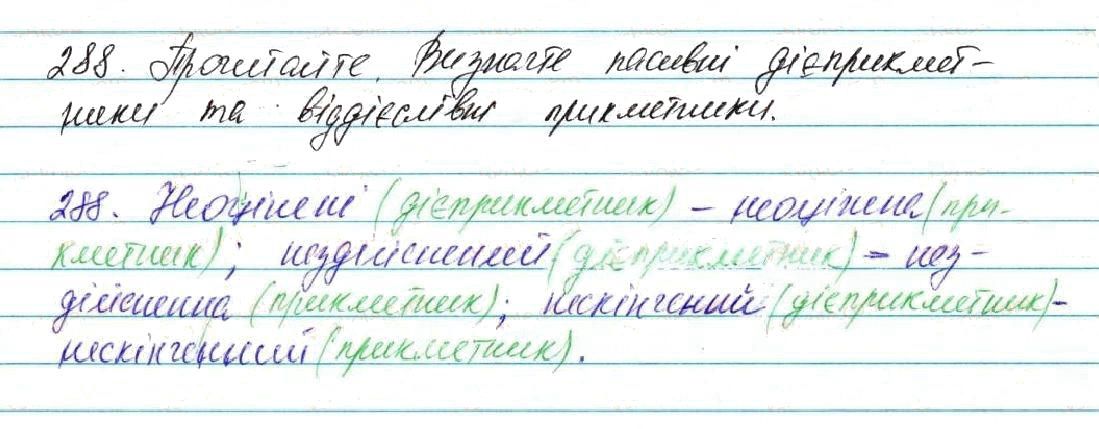 288. Прочитайте. Визначте пасивні дієприкмет-
ники та віддієслівні прикметники.
288. Неоцінені (дієприкметник) – неоціненна (при-
кметник); нездійснений (дієприкметник) – нез-
дійсненна (прикметник); нескінчений (дієприкметник) –
нескінченний (прикметник).